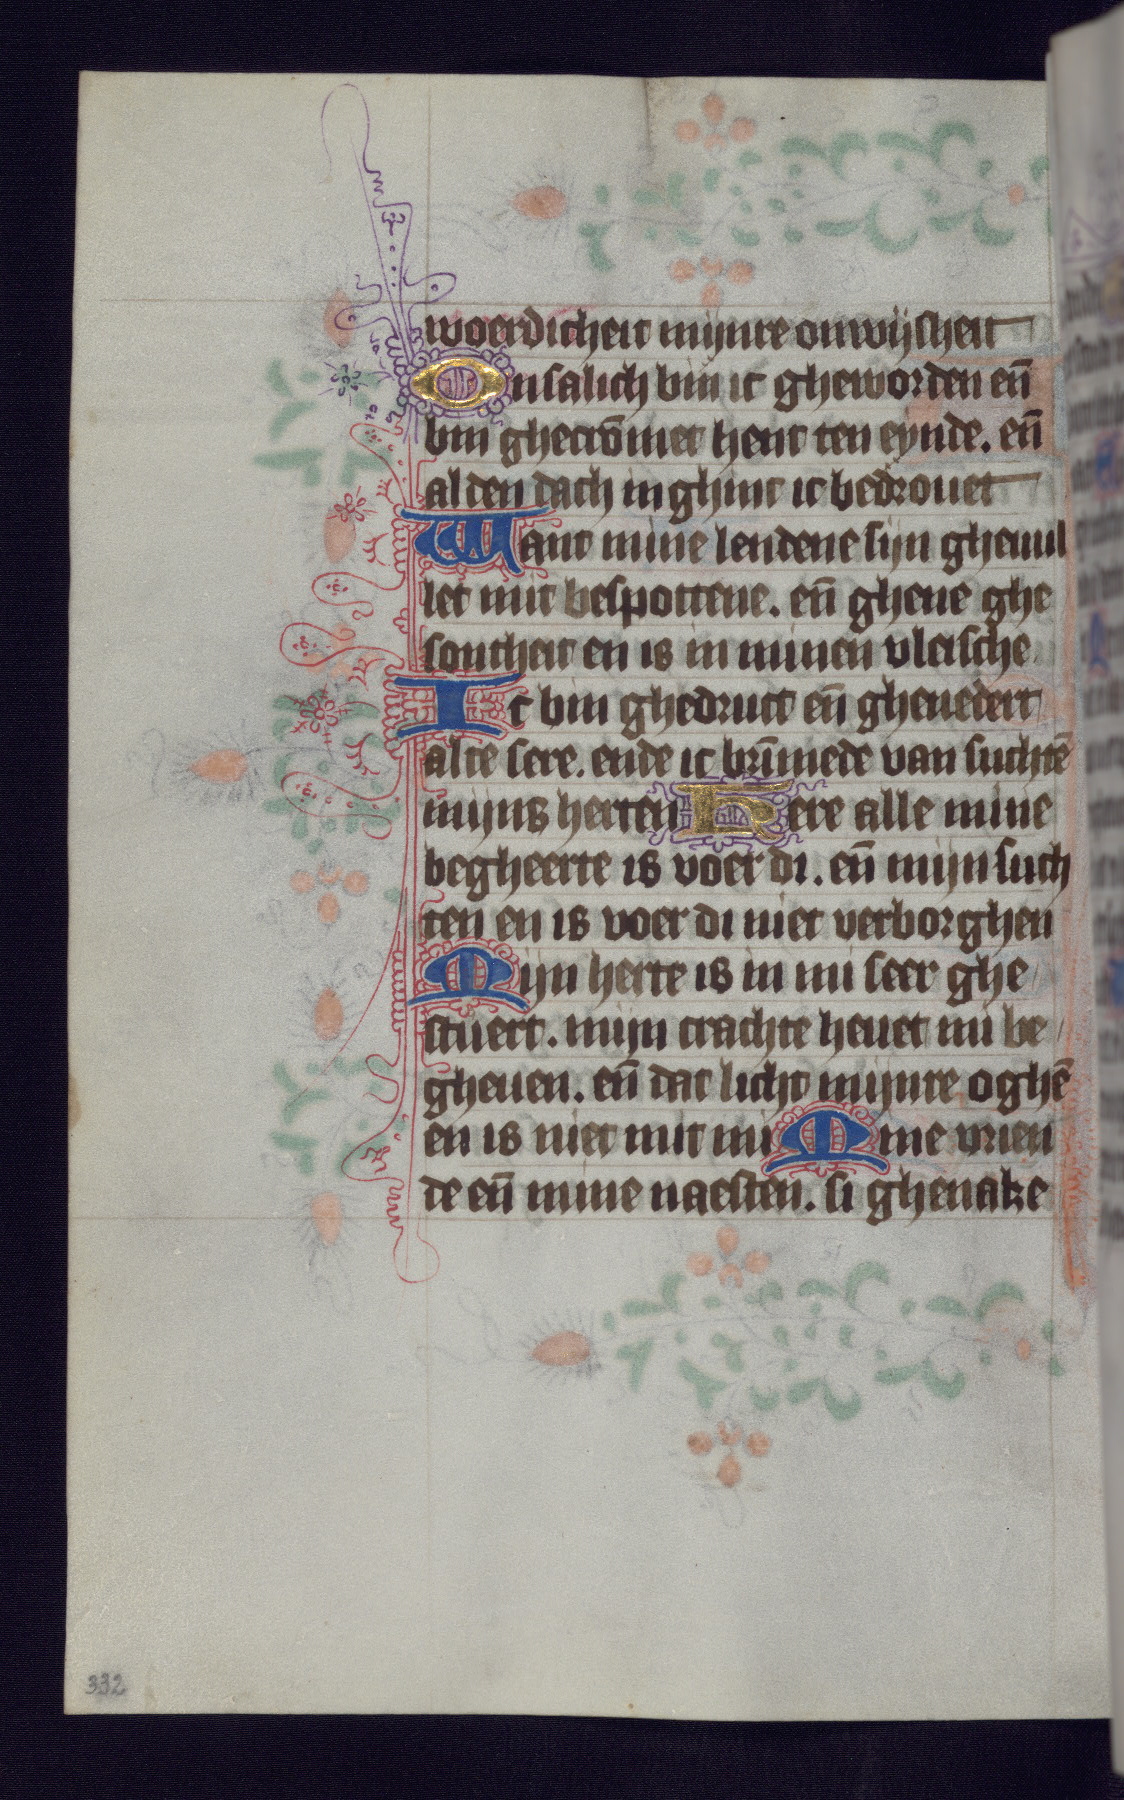 woerdicheit mijnre onwijsheit
Onsalich bin ic gheworden eñ
bin ghecrõmet hent ten eynde. eñ
al den dach in ghinc ic bedrouet
Want mine lendene sijn gheuul
let mit bespottene. eñ gheue ghe
sontheit en is in minen vleische
Ic bin ghedruct eñ gheuedert
alte sere. ende ic brīmede van suchtē
mijns herten Here alle mine
begheerte is voer di. eñ mijn such
ten en is voer di niet verborghen
Mijn herte is in mi seer ghe
stuert. mijn crachte heuet mi be
gheuen. eñ dat licht mijnre oghē
en is niet mit mi Mine vrien
de eñ mine naesten. si ghenake
332